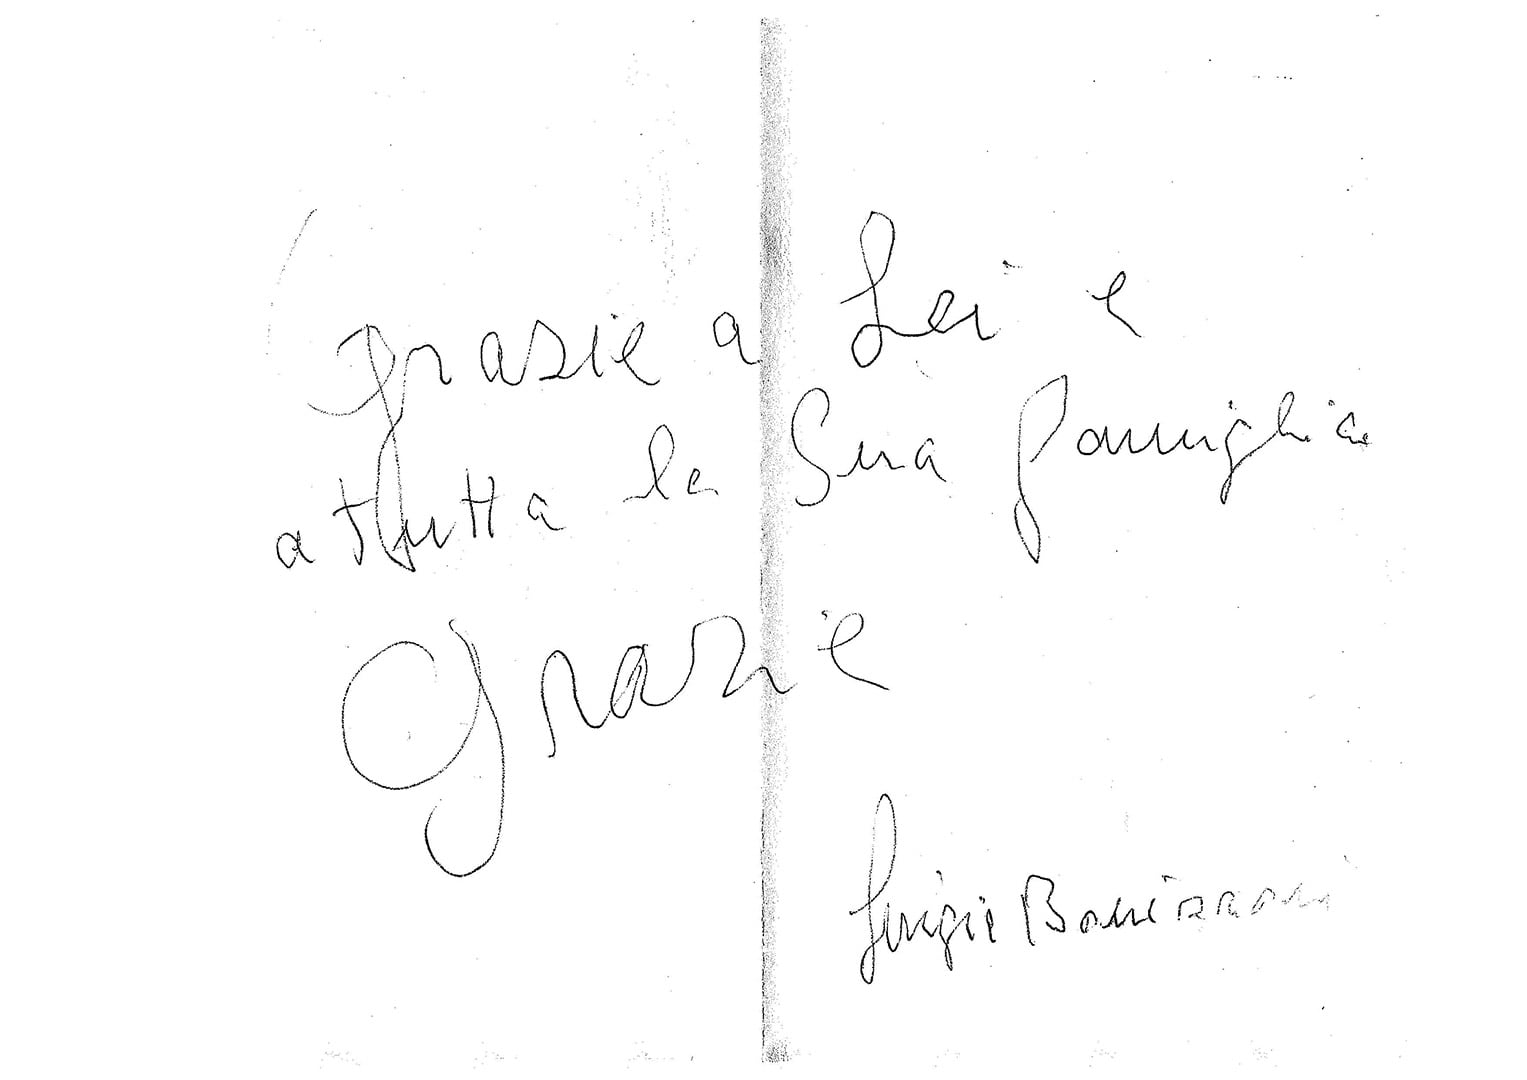 grazie a Lei e
a tutta la Sua famiglia
Grazie
Luigi